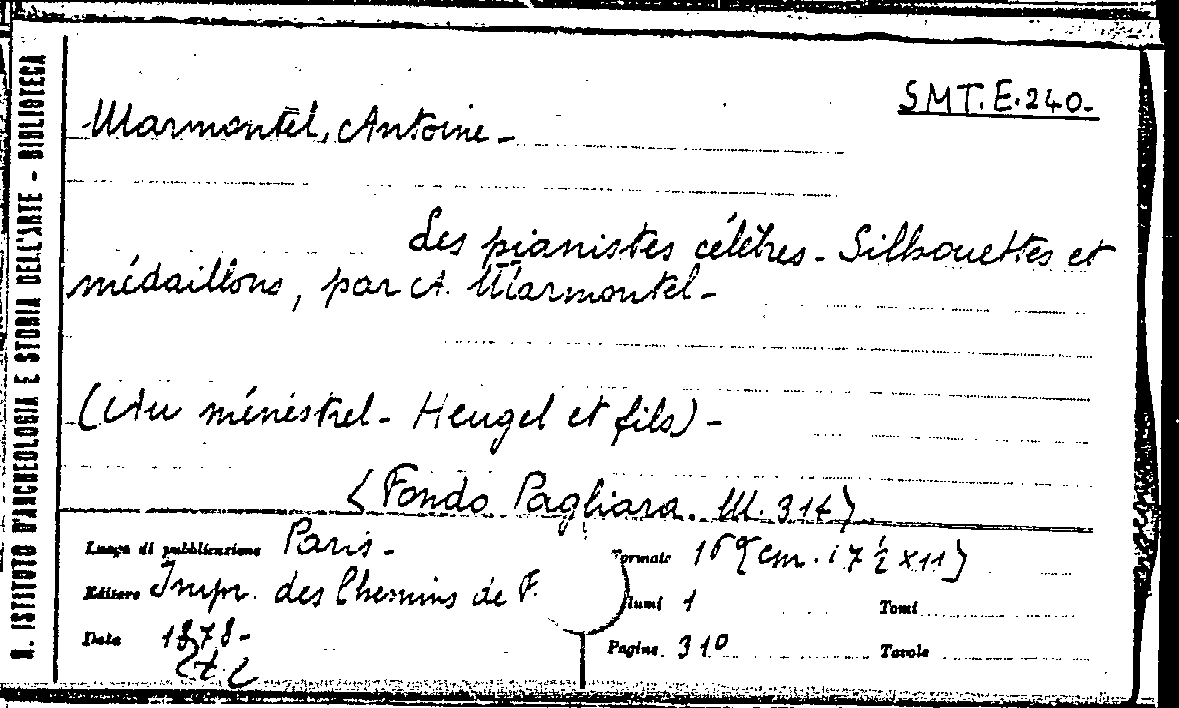 R. ISTITUTO D'ARCHEOLOGIA E STORIA DELL'ARTE - BIBLIOTECA
SMT.E.240.
Marmontel, Antoine -
Les pianistes célèbres - Silhouettes et
médaillons, par A. Marmontel -
(Au ménéstrel - Heugel et fils) -
<Fondo Pagliara. M. 314>
Luogo di pubblicazione Paris - Formato 16° (cm. 17 ½ x 11)
Editore Impr. des Chemins de F. lumi 1 Tomi
Data 1878 - Pagine 310 Tavole